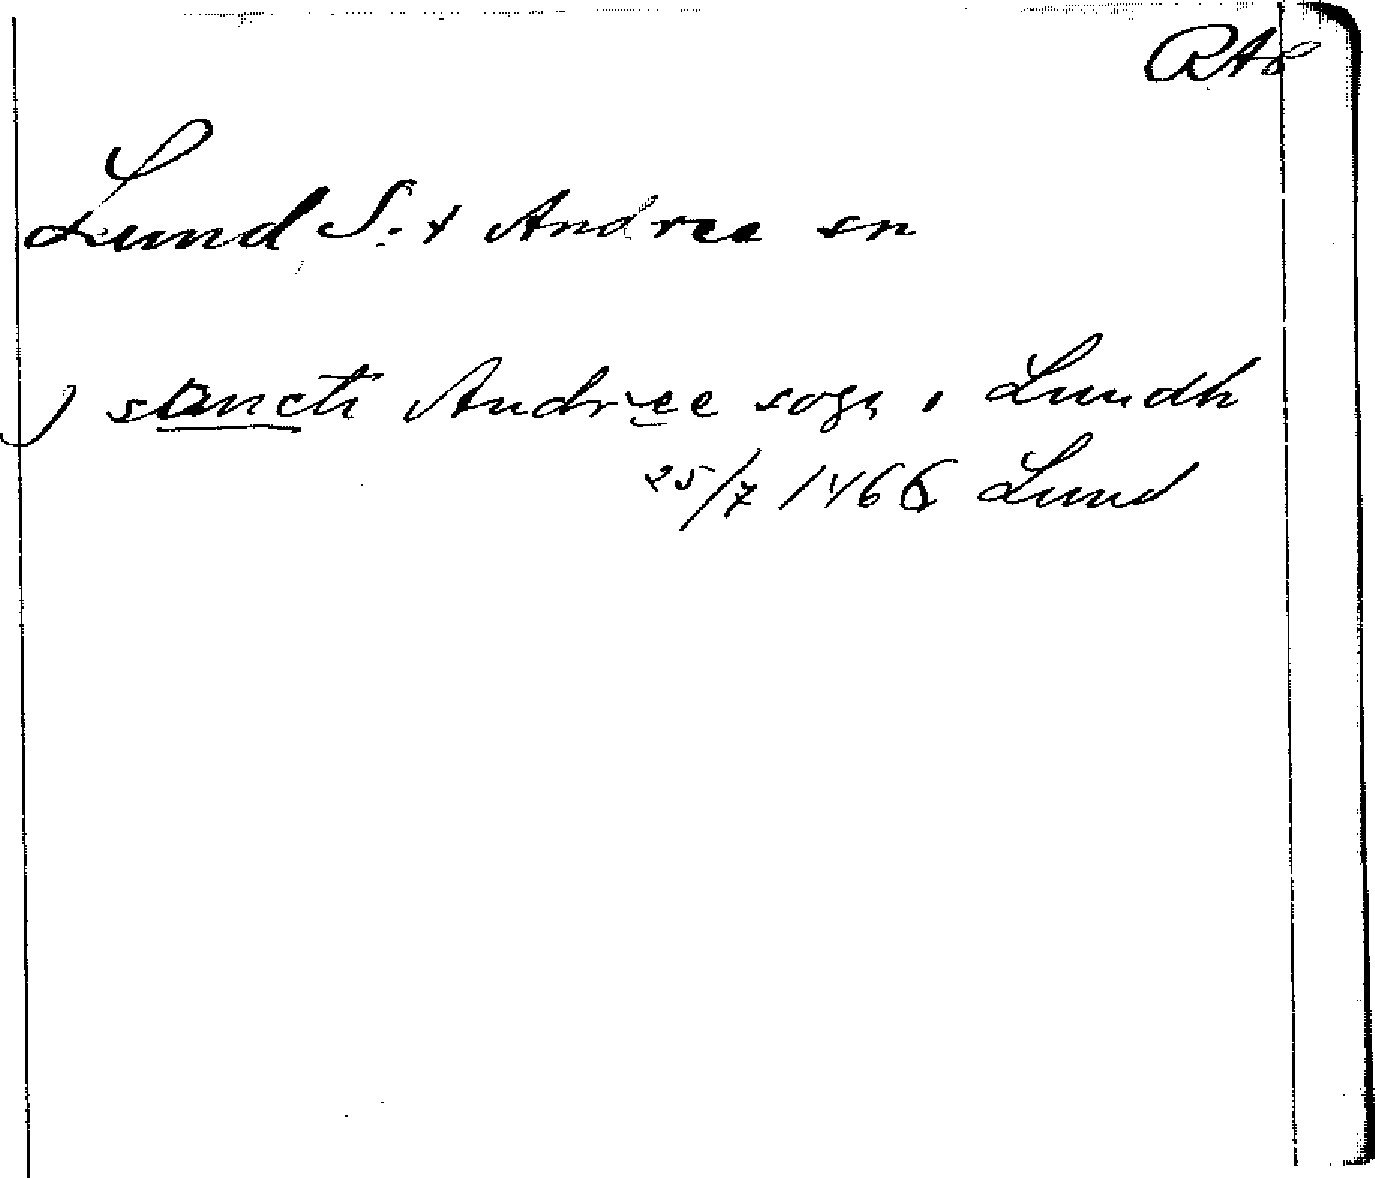 RAp
Lund S:t Andree sn
j sancti Andree sogn i Lundh
25/7 1466 Lund